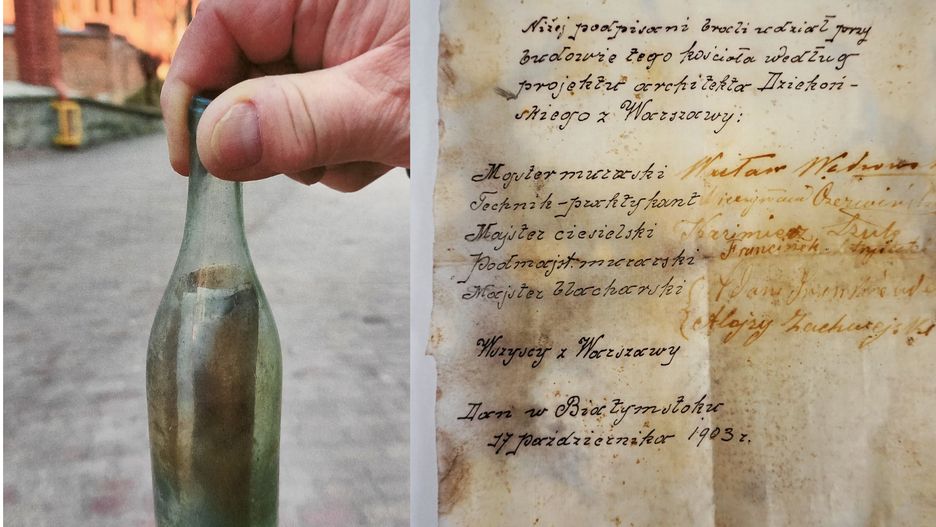 Niżej podpisani brali udział przy
budowie tego kościoła według
projektu architekta Dziekoń-
skiego z Warszawy:
Majster murarski Wacław
Technik-praktykant
Majster ciesielski Kazimierz
Podmajst. murarski Franciszek
Majster blacharski Jan
Alojzy
Wszyscy z Warszawy
Dan w Białymstoku
17 października 1903 r.